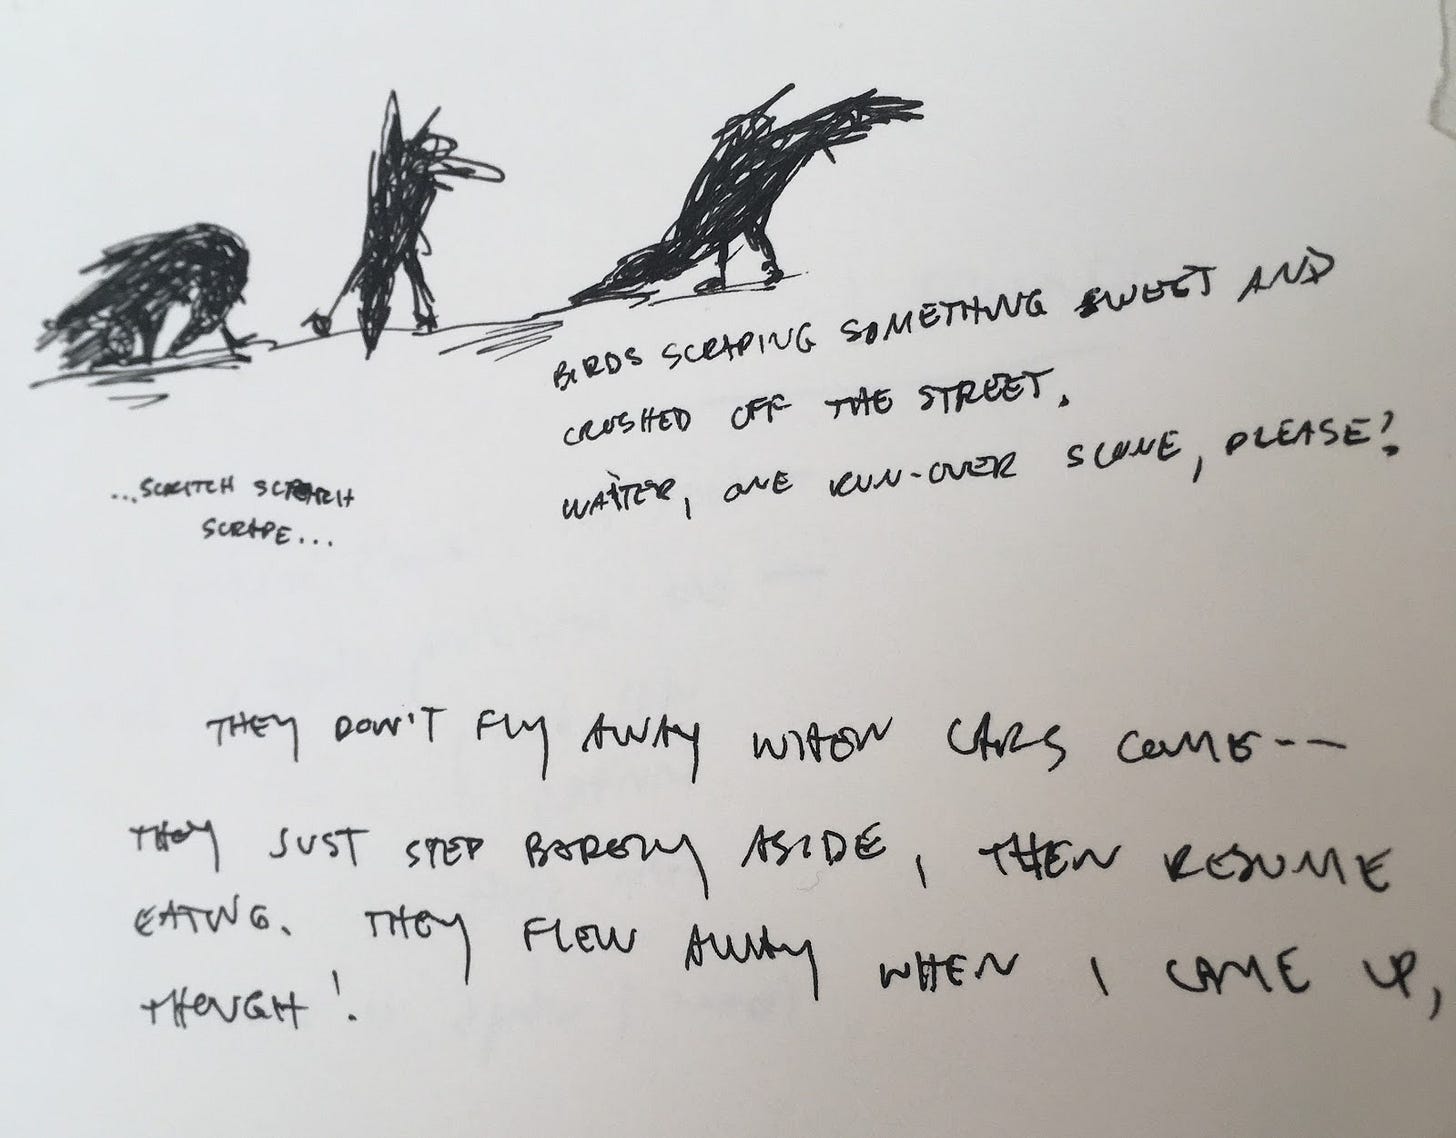 BIRDS SCRAPING SOMETHING SWEET AND
CRUSHED OFF THE STREET.
WAITER, ONE RUN-OVER SCONE, PLEASE!
...SCRITCH SCRATCH
SCRAPE...
THEY DON'T FLY AWAY WHEN CARS COME--
THEY JUST STEP BARELY ASIDE, THEN RESUME
EATING. THEY FLEW AWAY WHEN I CAME UP,
THOUGH!